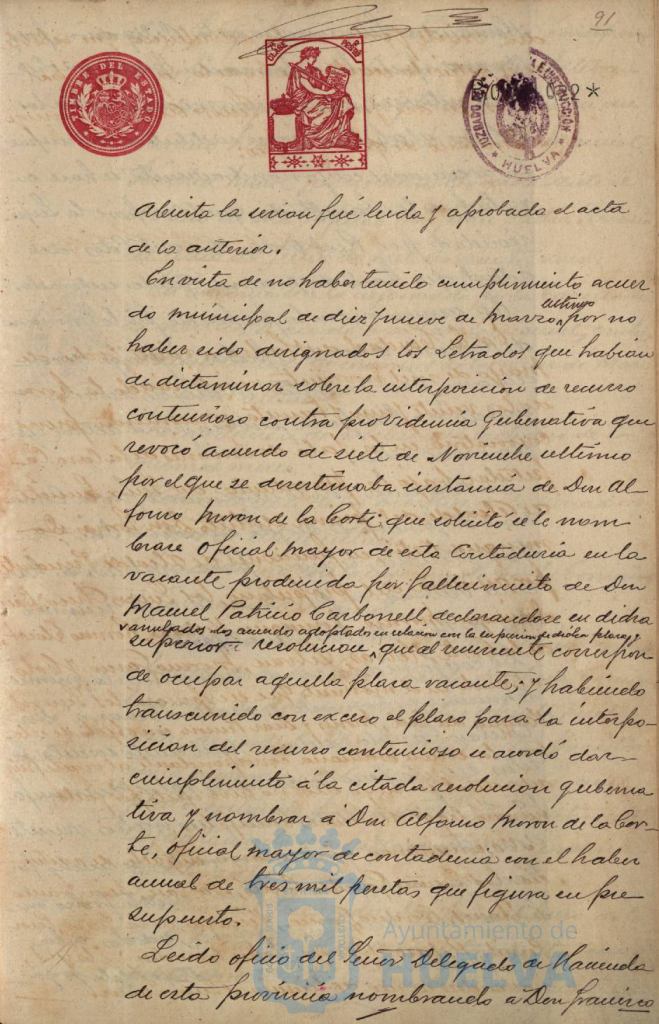 91
TIMBRE DEL ESTADO
CLASE
HUELVA
Abierta la sesion fué leida y aprobada el acta
de la anterior.
En vista de no haber tenido cumplimiento acuer
do municipal de diez y nueve de Marzo ultimo, por no
haber sido designados los Letrados que habian
de dictaminar sobre la interposicion de recurso
contencioso contra providencia Gubernativa que
revocó acuerdo de siete de Noviembre ultimo
por el que se desestimaba instancia de Don Al-
fonso Moron de la Corte que solicitó se le nom
brase Oficial Mayor de esta Contaduria en la
vacante producida por fallecimiento de Don
Manuel Patricio Carbonell, declarandose en dicha
anulados los acuerdos adoptados en relacion con la supresion de dicha plaza y
superior resolucion, que al recurrente correspon
de ocupar aquella plaza vacante; y habiendo
transcurrido con exceso el plazo para la interpo-
sicion del recurso contencioso se acordó dar
cumplimiento á la citada resolucion guberna
tiva y nombrar á Don Alfonso Moron de la Cor-
te, oficial mayor de contaduria con el haber
anual de tres mil pesetas que figura en pre
supuesto.
Leido oficio del Señor Delegado de Hacienda
de esta provincia nombrando a Don Francisco
Ayuntamiento de
HUELVA